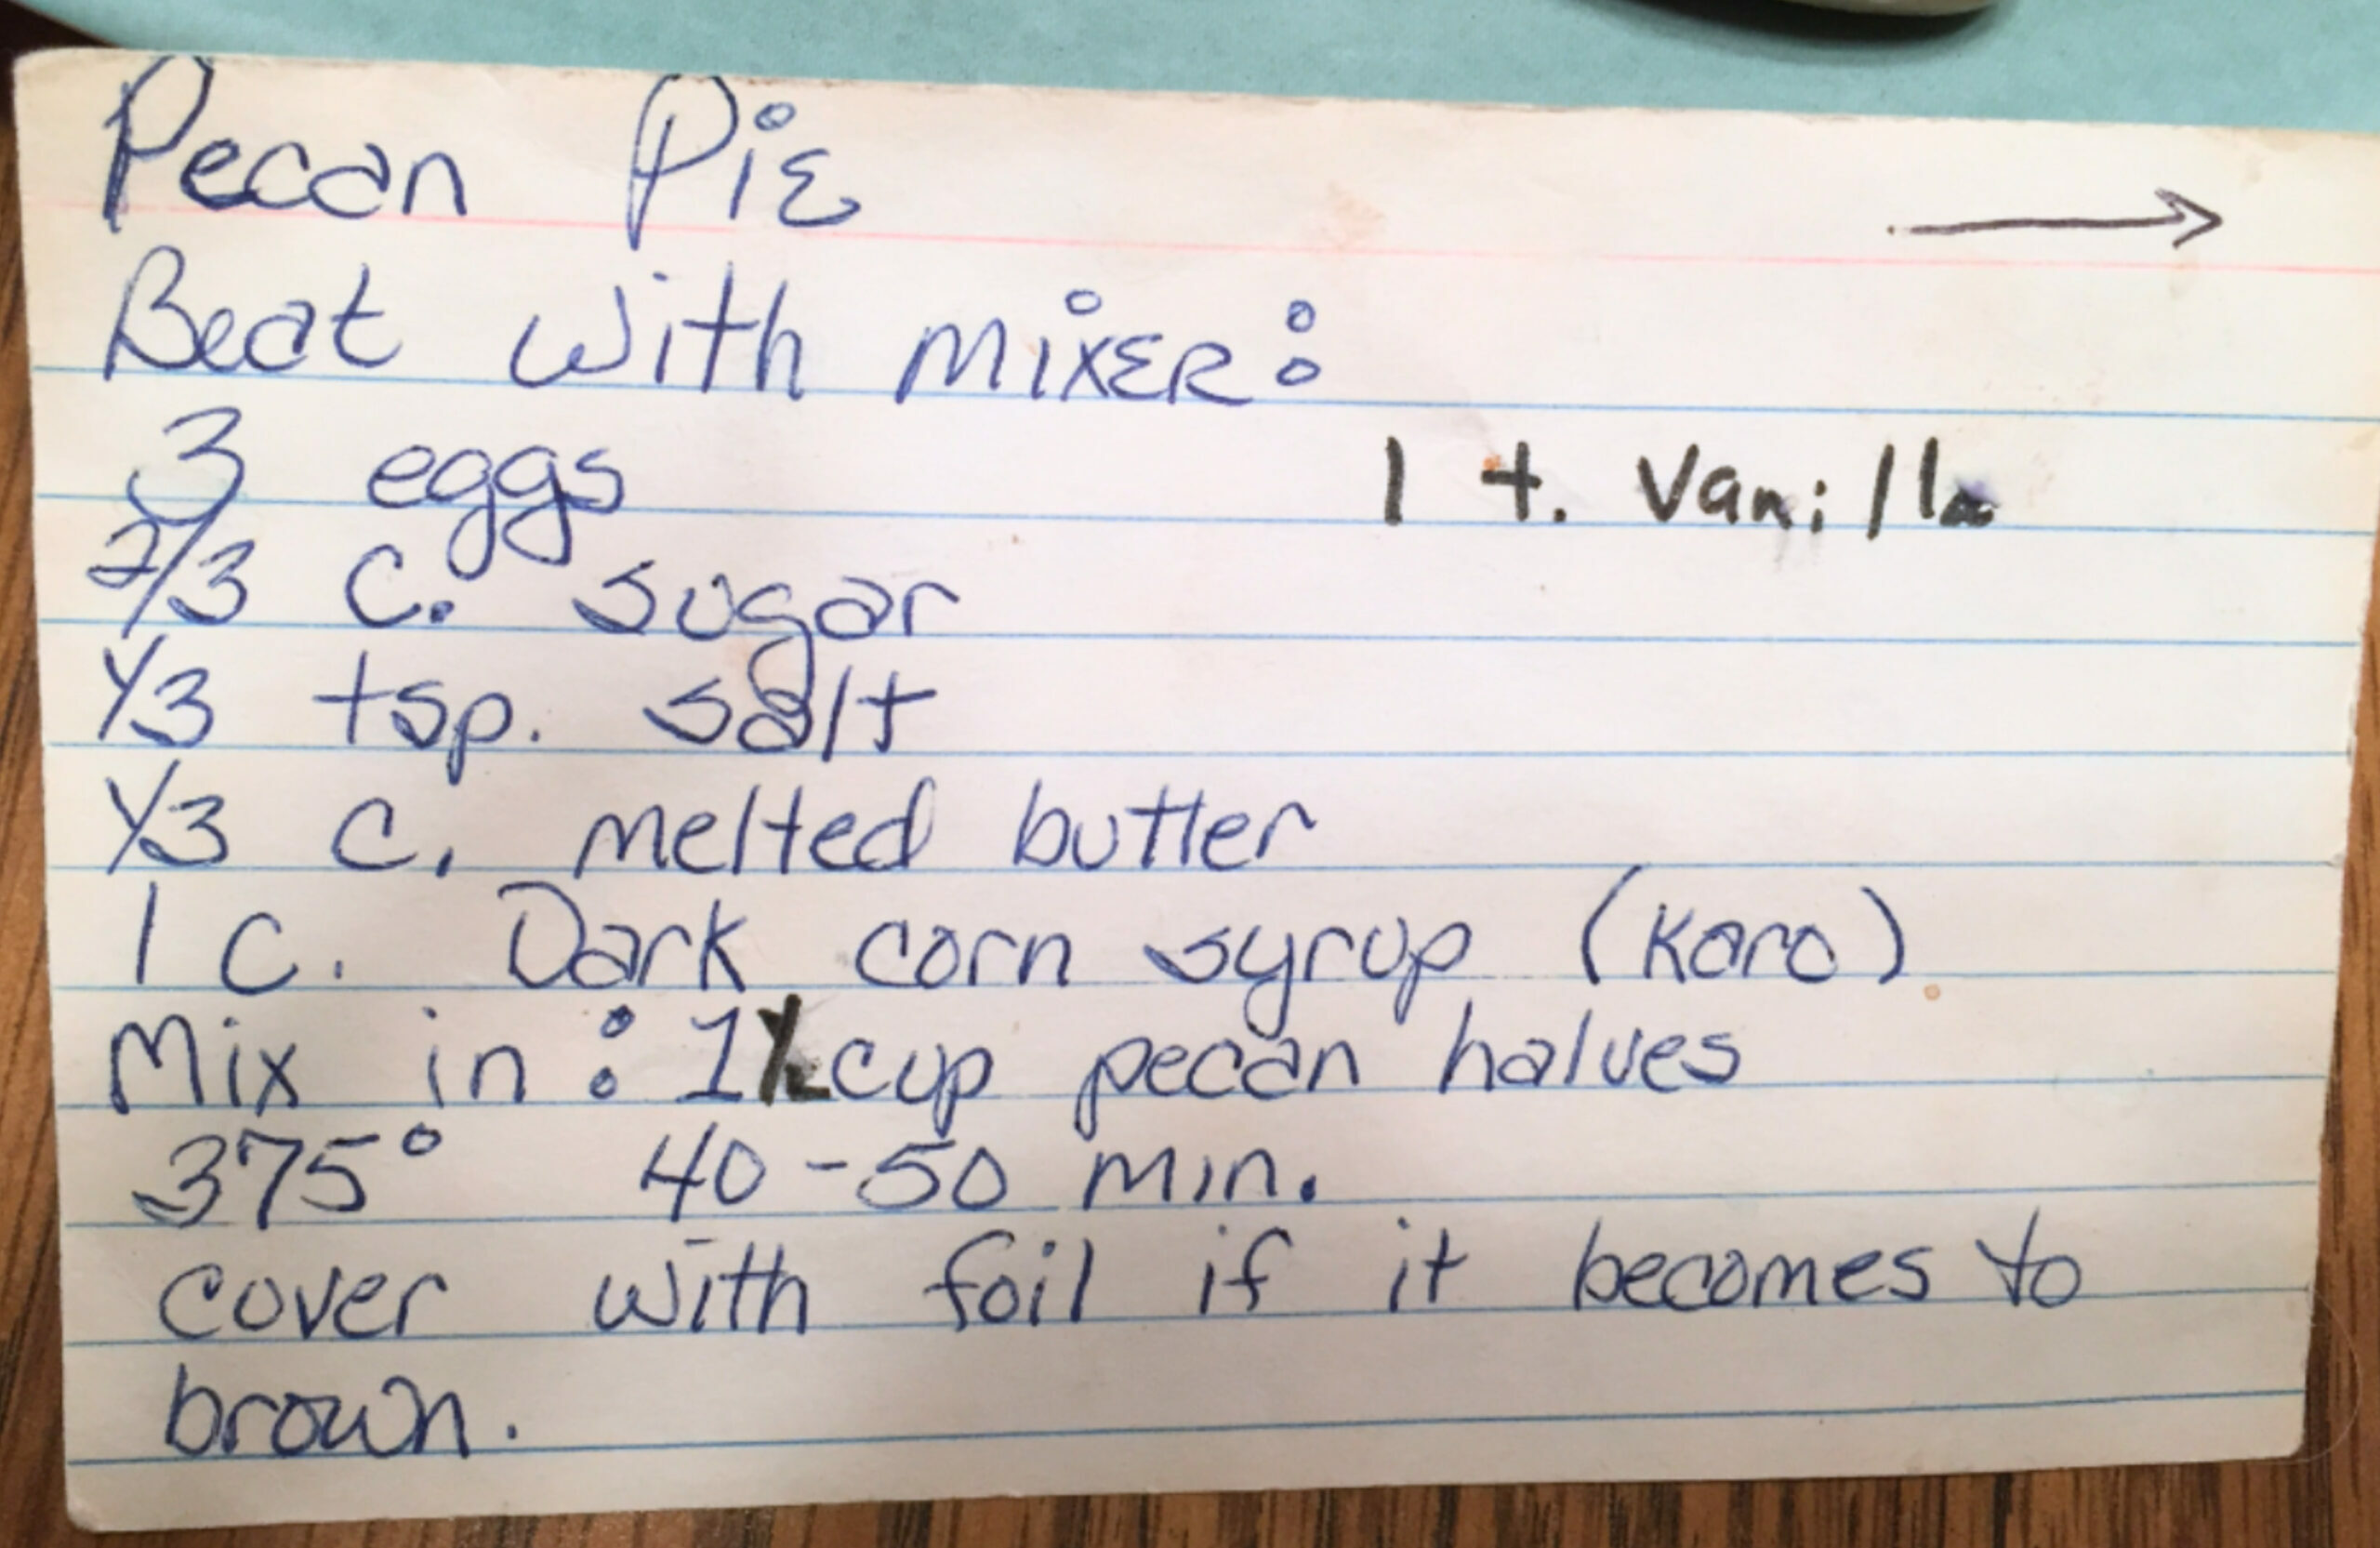 Pecan Pie
→
Beat with mixer:
3 eggs
1 t. Vanilla
2/3 c. sugar
1/3 tsp. salt
1/3 c. melted butter
1 c. Dark corn syrup (Karo)
Mix in: 1 cup pecan halves
375° 40-50 min.
cover with foil if it becomes to
brown.